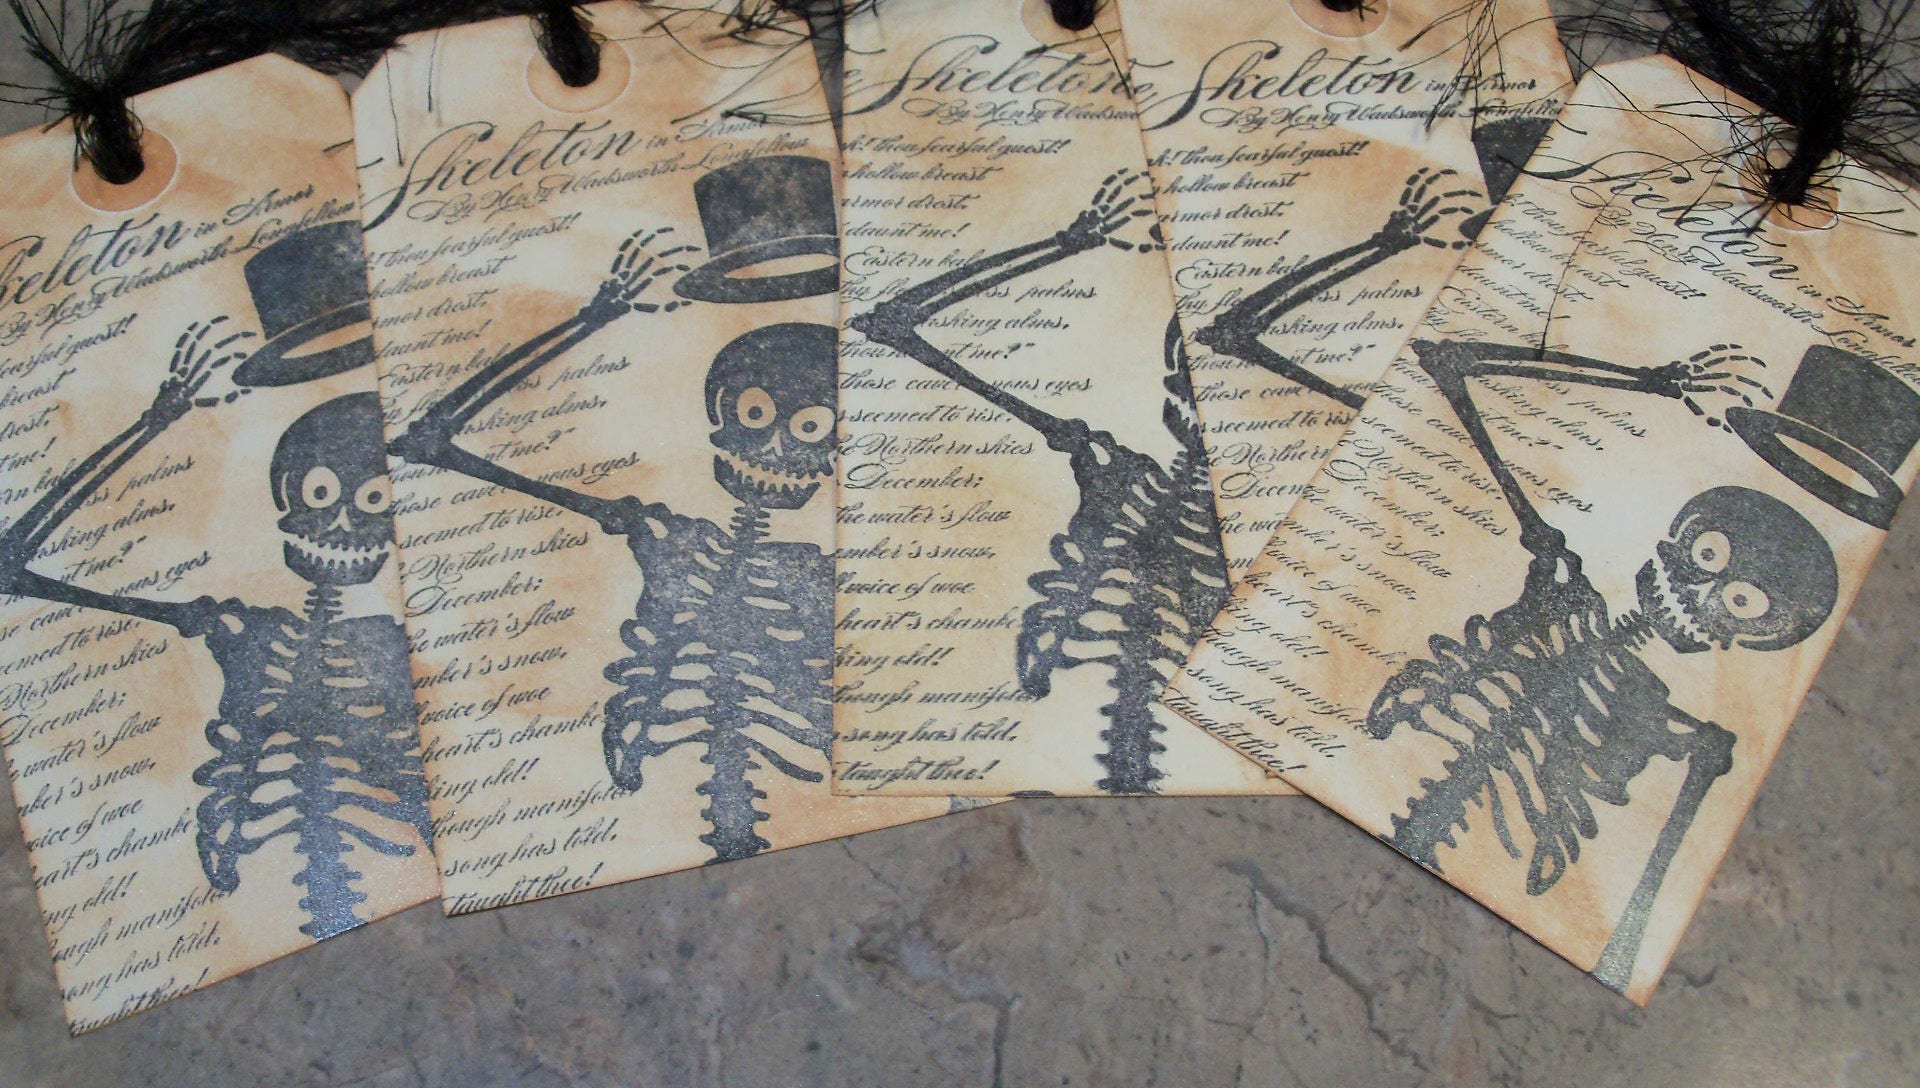 Skeleton in Armor
By Henry Wadsworth Longfellow
fearful guest!
breast
drest,
me!
palms
alms,
me?"
eyes
seemed to rise,
Northern skies
December;
water's flow
snow,
voice of woe
heart's
old!
manifold
song has told,
taught thee!
Skeleton in Armor
By Henry Wadsworth Longfellow
k! thou fearful guest!
hollow breast
armor drest,
daunt me!
Eastern
thy palms
alms,
thou me?"
those eyes
seemed to rise,
Northern skies
December;
the water's flow
ember's snow,
voice of woe
heart's chamber
king old!
though manifold
song has told,
taught thee!
Skeleton
By Henry Wadsw
k! thou fearful guest!
hollow breast
armor drest,
daunt me!
Eastern
thy palms
asking alms,
thou
those cavernous eyes
seemed to rise,
Northern skies
December;
the water's flow
ember's snow,
voice of woe
heart's chambe
king old!
though manifold
song has told,
taught thee!
Skeleton in Armor
By Henry Wadsworth Longfello
k! thou fearful guest!
hollow breast
armor drest,
daunt me!
Eastern
thy palms
asking alms,
thou me?"
those
seemed to ris
Northern
Decem
the wa
Skeleton in Armor
By Henry Wadsworth Longfello
k! thou fearful guest!
hollow breast
armor drest,
daunt me!
Eastern
palms
asking alms,
me?"
those eyes
seemed to rise,
Northern skies
December;
the water's flow
ember's snow,
voice of woe
heart's chambe
king old!
though manifold
song has told,
taught thee!